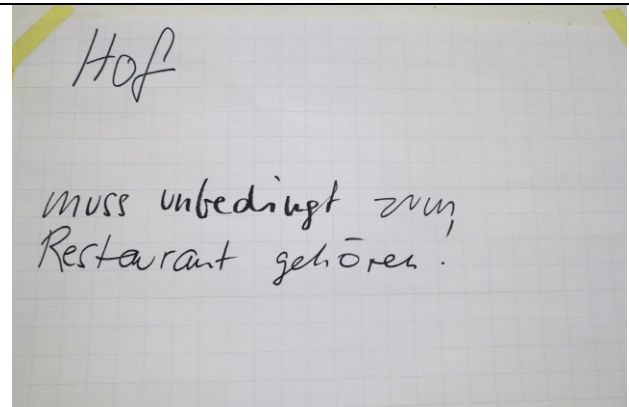 Hof
muss unbedingt zum
Restaurant gehören.